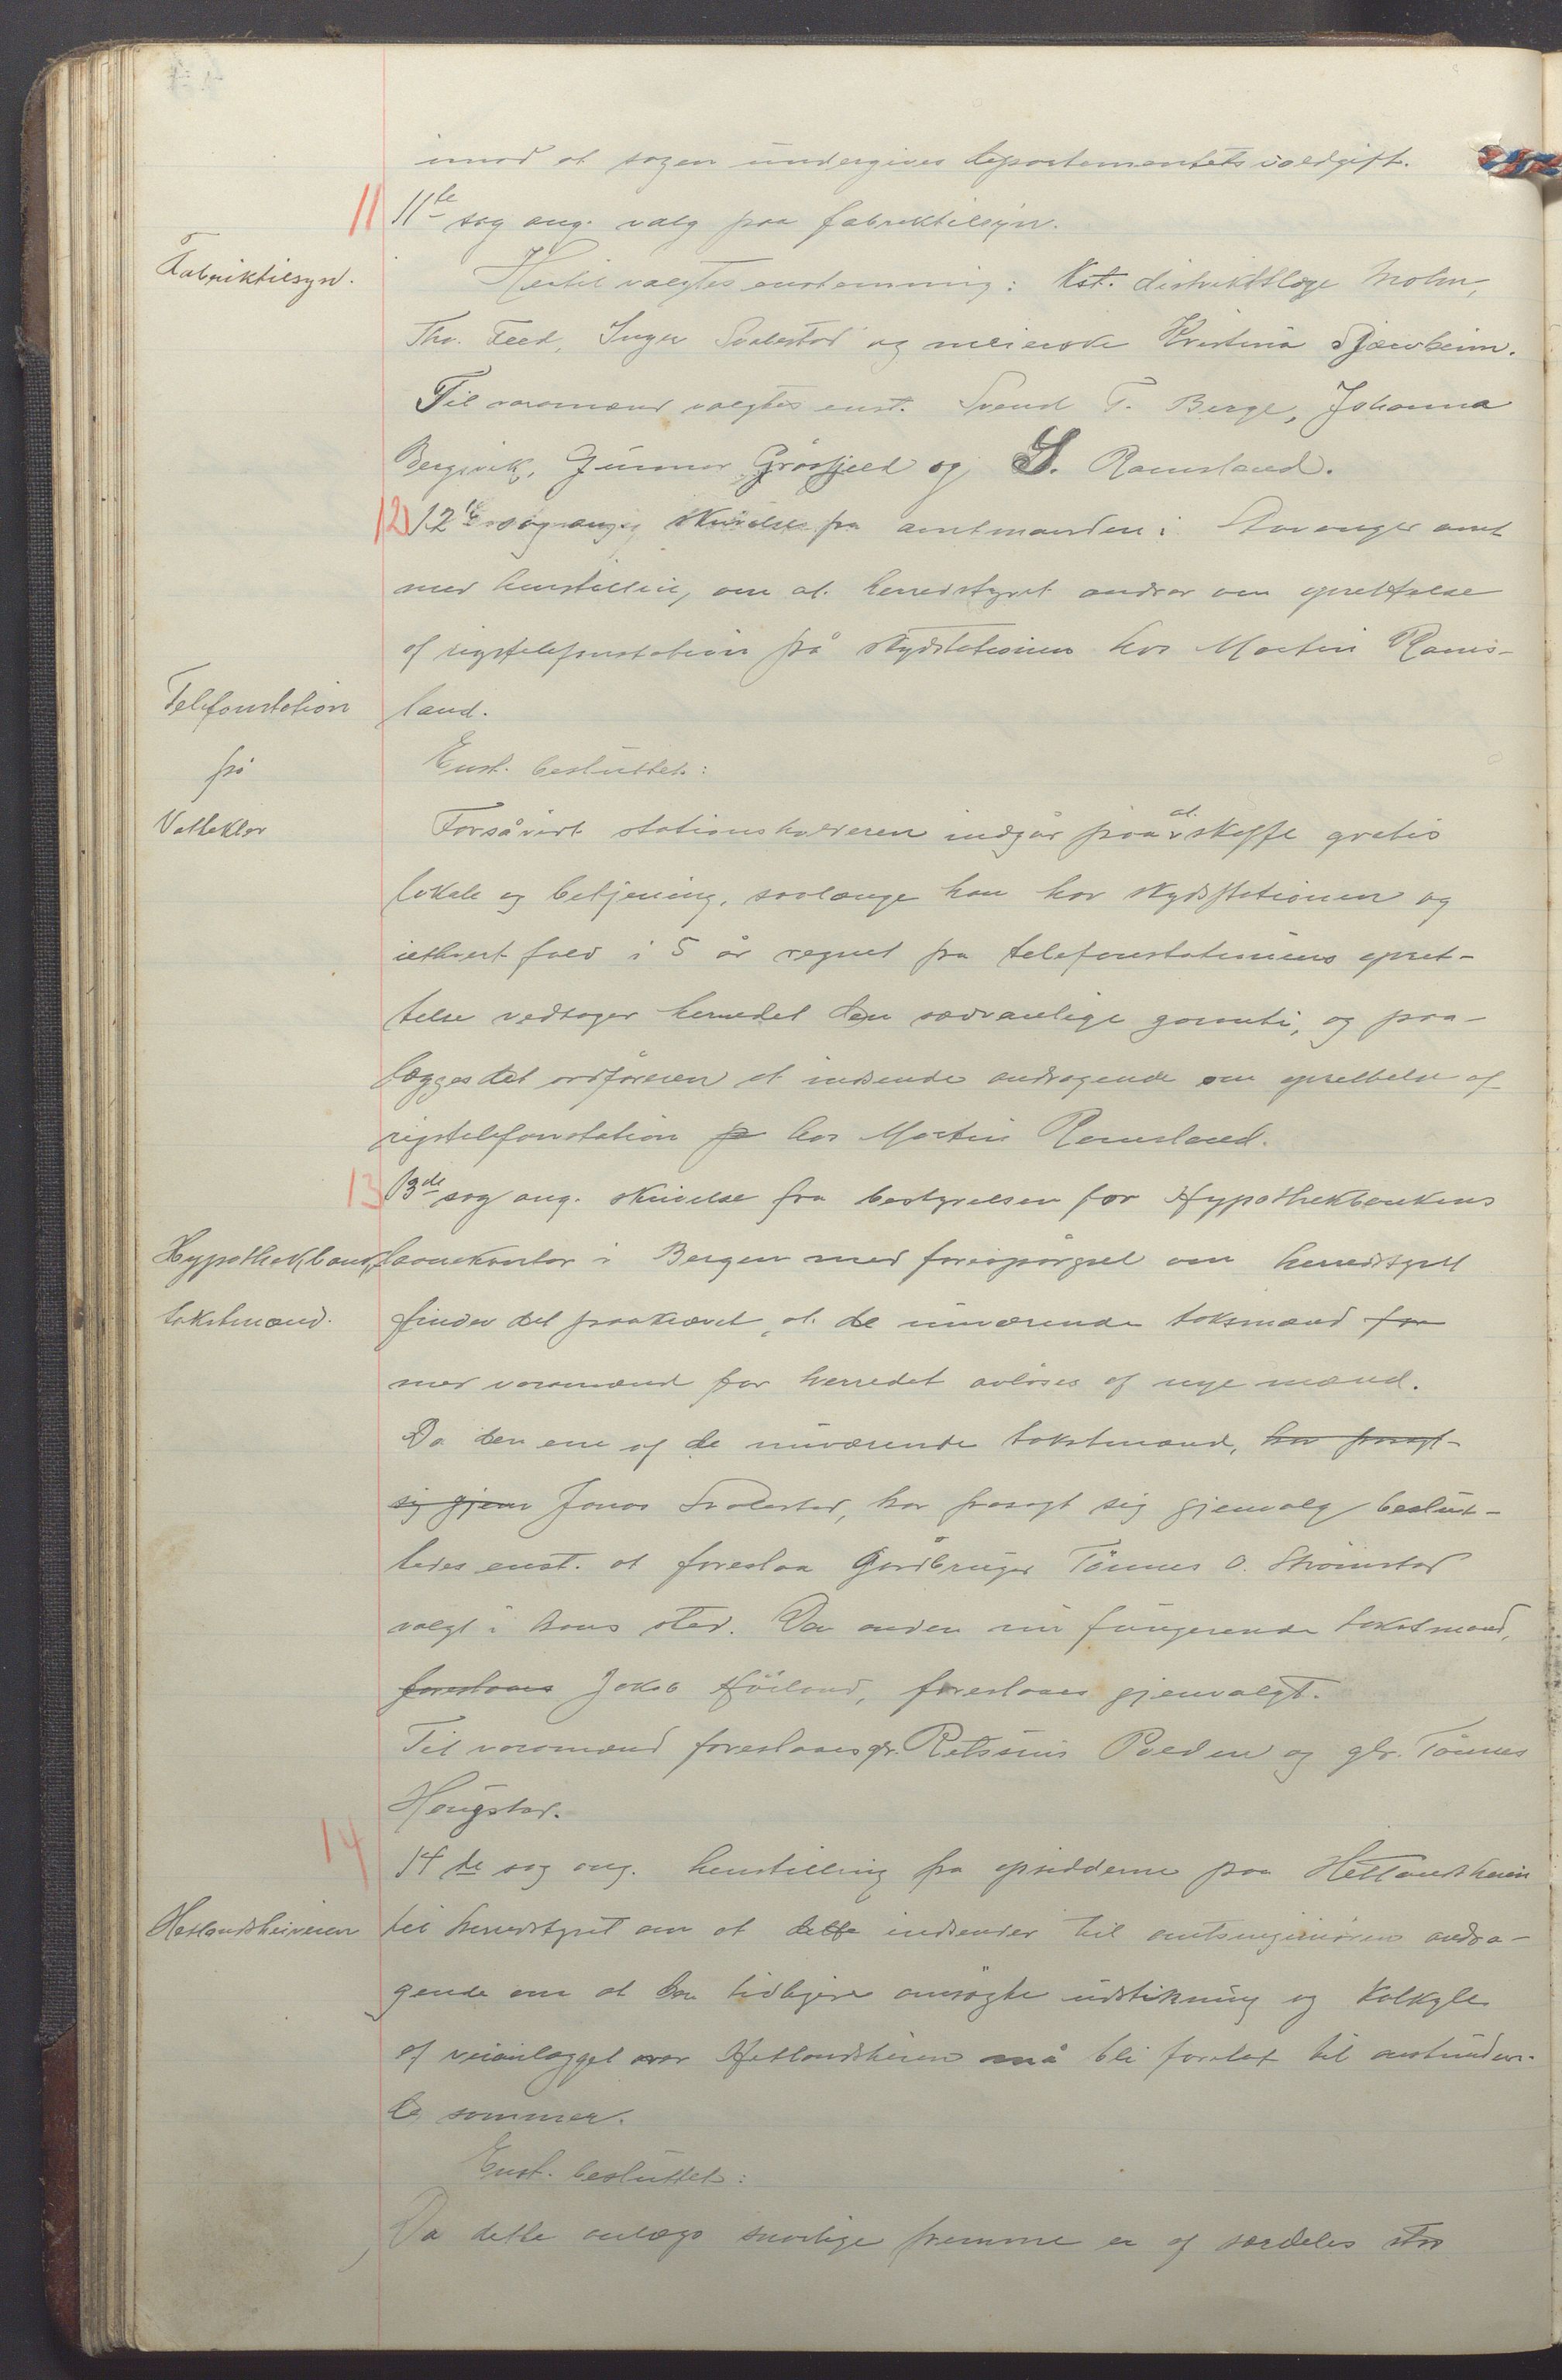 imod at sagen undergives departementets voldgift.
11 11te sag ang. valg paa fabriktilsyn.
Fabriktilsyn.
Hertil valgtes enstemmig: Kst. distriktslæge Holm,
Tho. Feed, Inger Svalestad og meierske Kristina Skjæveheim.
Til varamænd valgtes enst. Svend T. Berge, Johanna
Bergevik, Gunnar Grøsfjeld og S. Ramsland.
12 12te sag ang. skrivelse fra amtmanden i Stavanger amt
med henstillin, om at herredstyret andrar om oprettelse
af rigstelefonstation på skydsstationen hos Martin Rams-
Telefonstation land.
på Enst. besluttet:
Vatleklev Forsåvidt stationsholderen indgår paa at skaffe gratis
lokale og betjening, saalænge han har skydsstationen og
iethvert fald i 5 år regnet fra telefonstationens opret-
telse vedtager herredet den sædvanlige garanti, og paa-
lægges det ordføreren at indsende andragende om oprettelse af
rigstelefonstation på hos Martin Ramsland.
13 13de sag ang. skrivelse fra bestyrelsen for Hypothekbankens
Hypothekbank, laanekontor i Bergen med forespørgsel om herredstyret
takstmænd. finder det paakrævet, at de nuværende taksmænd for
med varamænd for herredet avløses af nye mænd.
Da den ene af de nuværende takstmænd, har frasagt-
sig gjen Jonas Svalestad, har frasagt sig gjenvalg beslut-
tedes enst. at foreslaa Gårdbruger Tönnes O. Strömstad
valgt i hans sted. Den anden nu fungerende takstmand,
foreslaaes Jakob Höiland, foreslaaes gjenvalgt.
Til varamænd foreslaaes gr. Rasmus Puedene og gbr. Tönnes
Haugstad.
14 14de sag ang. henstilling fra opsidderne paa Hetlandsheien
Hetlandsheiveien til herredstyret om at dette indsender til amtsingeniøren andra-
gende om at den tidligere ansøgte udstikning og kalkyle
af veianlægget over Hetlandsheien må bli foretat til anstunden-
de sommer.
Enst. besluttet:
Da dette anlægs snarlige fremme er af særdeles stor